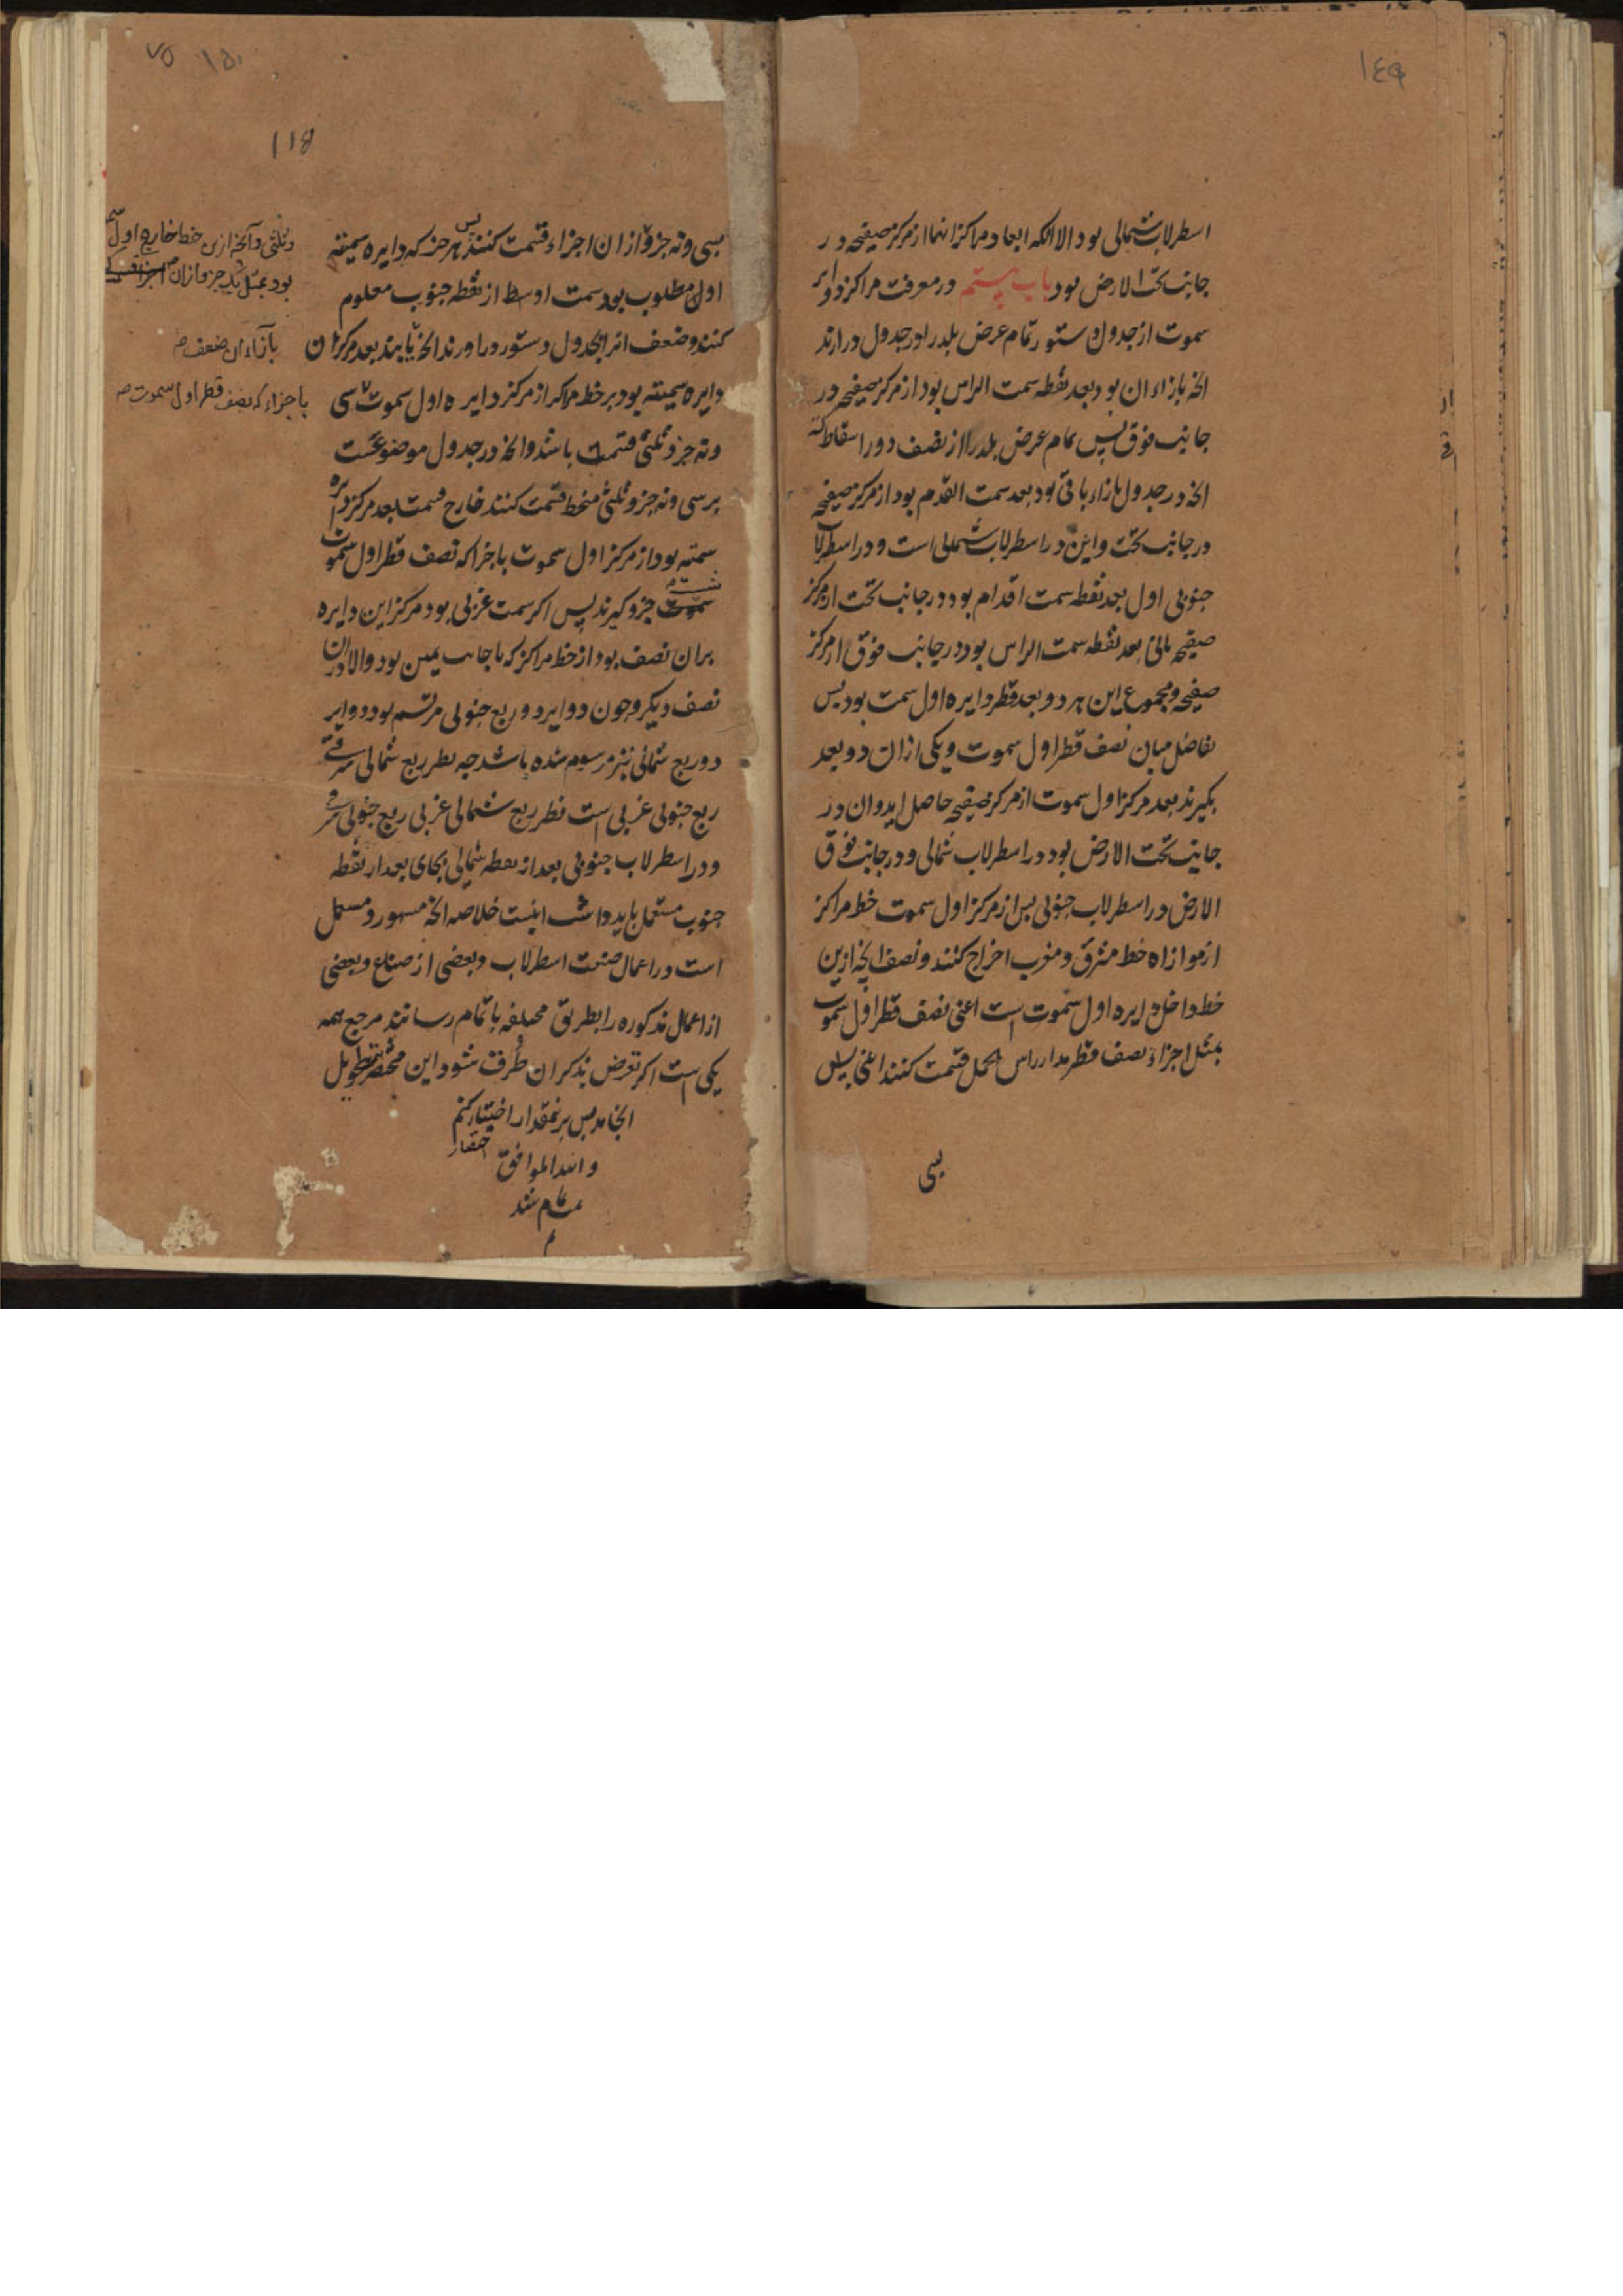 ١٤٩
اسطرلاب شمالی بود الا انکه ابعاد مراکز انها از مرکز صفیحه در
جانب تحت الارض بود باب بیستم در معرفت مراکز دوایر
سموت از جدول دستور تمام عرض بلد را در جدول در ارند
انچه بازاء ان بود بعد نقطه سمت الراس بود از مرکز صفیحه در
جانب فوق پس تمام عرض بلد را از نصف دور اسقاط کنند
انچه در جدول بازاء باقی بود بعد سمت القدم بود از مرکز صفیحه
در جانب تحت و این در اسطرلاب شمالی است و در اسطرلاب
جنوبی اول بعد نقطه سمت اقدام بود در جانب تحت از مرکز
صفیحه ثانی بعد نقطه سمت الراس بود در جانب فوق از مرکز
صفیحه و مجموع این هر دو بعد قطر دایره اول سمت بود پس
تفاضل میان نصف قطر اول سموت و یکی ازان دو بعد
بکیرند بعد مرکز اول سموت از مرکز صفیحه حاصل اید و ان در
جانب تحت الارض بود در اسطرلاب شمالی و در جانب فوق
الارض در اسطرلاب جنوبی پس از مرکز اول سموت خط مراکز
از موازاه خط مشرق و مغرب اخراج کنند و نصف انچه ازین
خط داخل دایره اول سموت است اعنی نصف قطر اول سموت
بمثل اجزاء نصف قطر مدار راس الحمل قسمت کنند اعنی
بسی
٧٥ ١٥٠
١١٥
بسی و نه جزو ازان اجزاء قسمت کنند پس هر جز که دایره سمتیه
اول مطلوب بود سمت اوسط از نقطه جنوب معلوم
کنند و ضعف انرا بجدول دستور در اورند انچه یابند بعد مرکز ان
دایره سمیته بود بر خط مراکز از مرکز دایره اول سموت سی
و نه جزو ثلثی قسمت باشد و انچه در جدول موضوعست
بر سی و نه جزو ثلثی منحط قسمت کنند خارج قسمت بعد مرکز دایره
سمته بود از مرکز اول سموت باجزا که نصف قطر اول سموت
سموت شصت جزو کیرند پس اکر سمت غربی بود مرکز این دایره
بران نصف بود از خط مراکز که با جانب یمین بود والا دران
نصف دیکر و چون دوایر دو ربع جنوبی مرتسم بود دوایر
دو ربع شمالی نیز مرسوم شده باشد چه نظر ربع شمالی شرقی
ربع جنوبی غربی است نظر ربع شمالی غربی ربع جنوبی شرقی
و در اسطرلاب جنوبی بعد از نقطه شمالی بجای بعد از نقطه
جنوب مستعمل باید داشت اینست خلاصه انچه مشهور و مستعمل
است در اعمال صنعت اسطرلاب و بعضی از صناع و بعضی
از اعمال مذکوره را بطریق مختلفه باتمام رسانند مرجع همه
یکی است اکر تعرض بذکر ان طرف شود این مختصر بتطویل
انجامد پس بر نمقدار اختیار کنم
اختصار
و الله الموافق
تمام شد
م
و ثلثی و آنچه ازین خط خارج اول
بود بمثل یک جزو ازان
بازاء ان ضعف
باجزاء که نصف قطر اول سموت